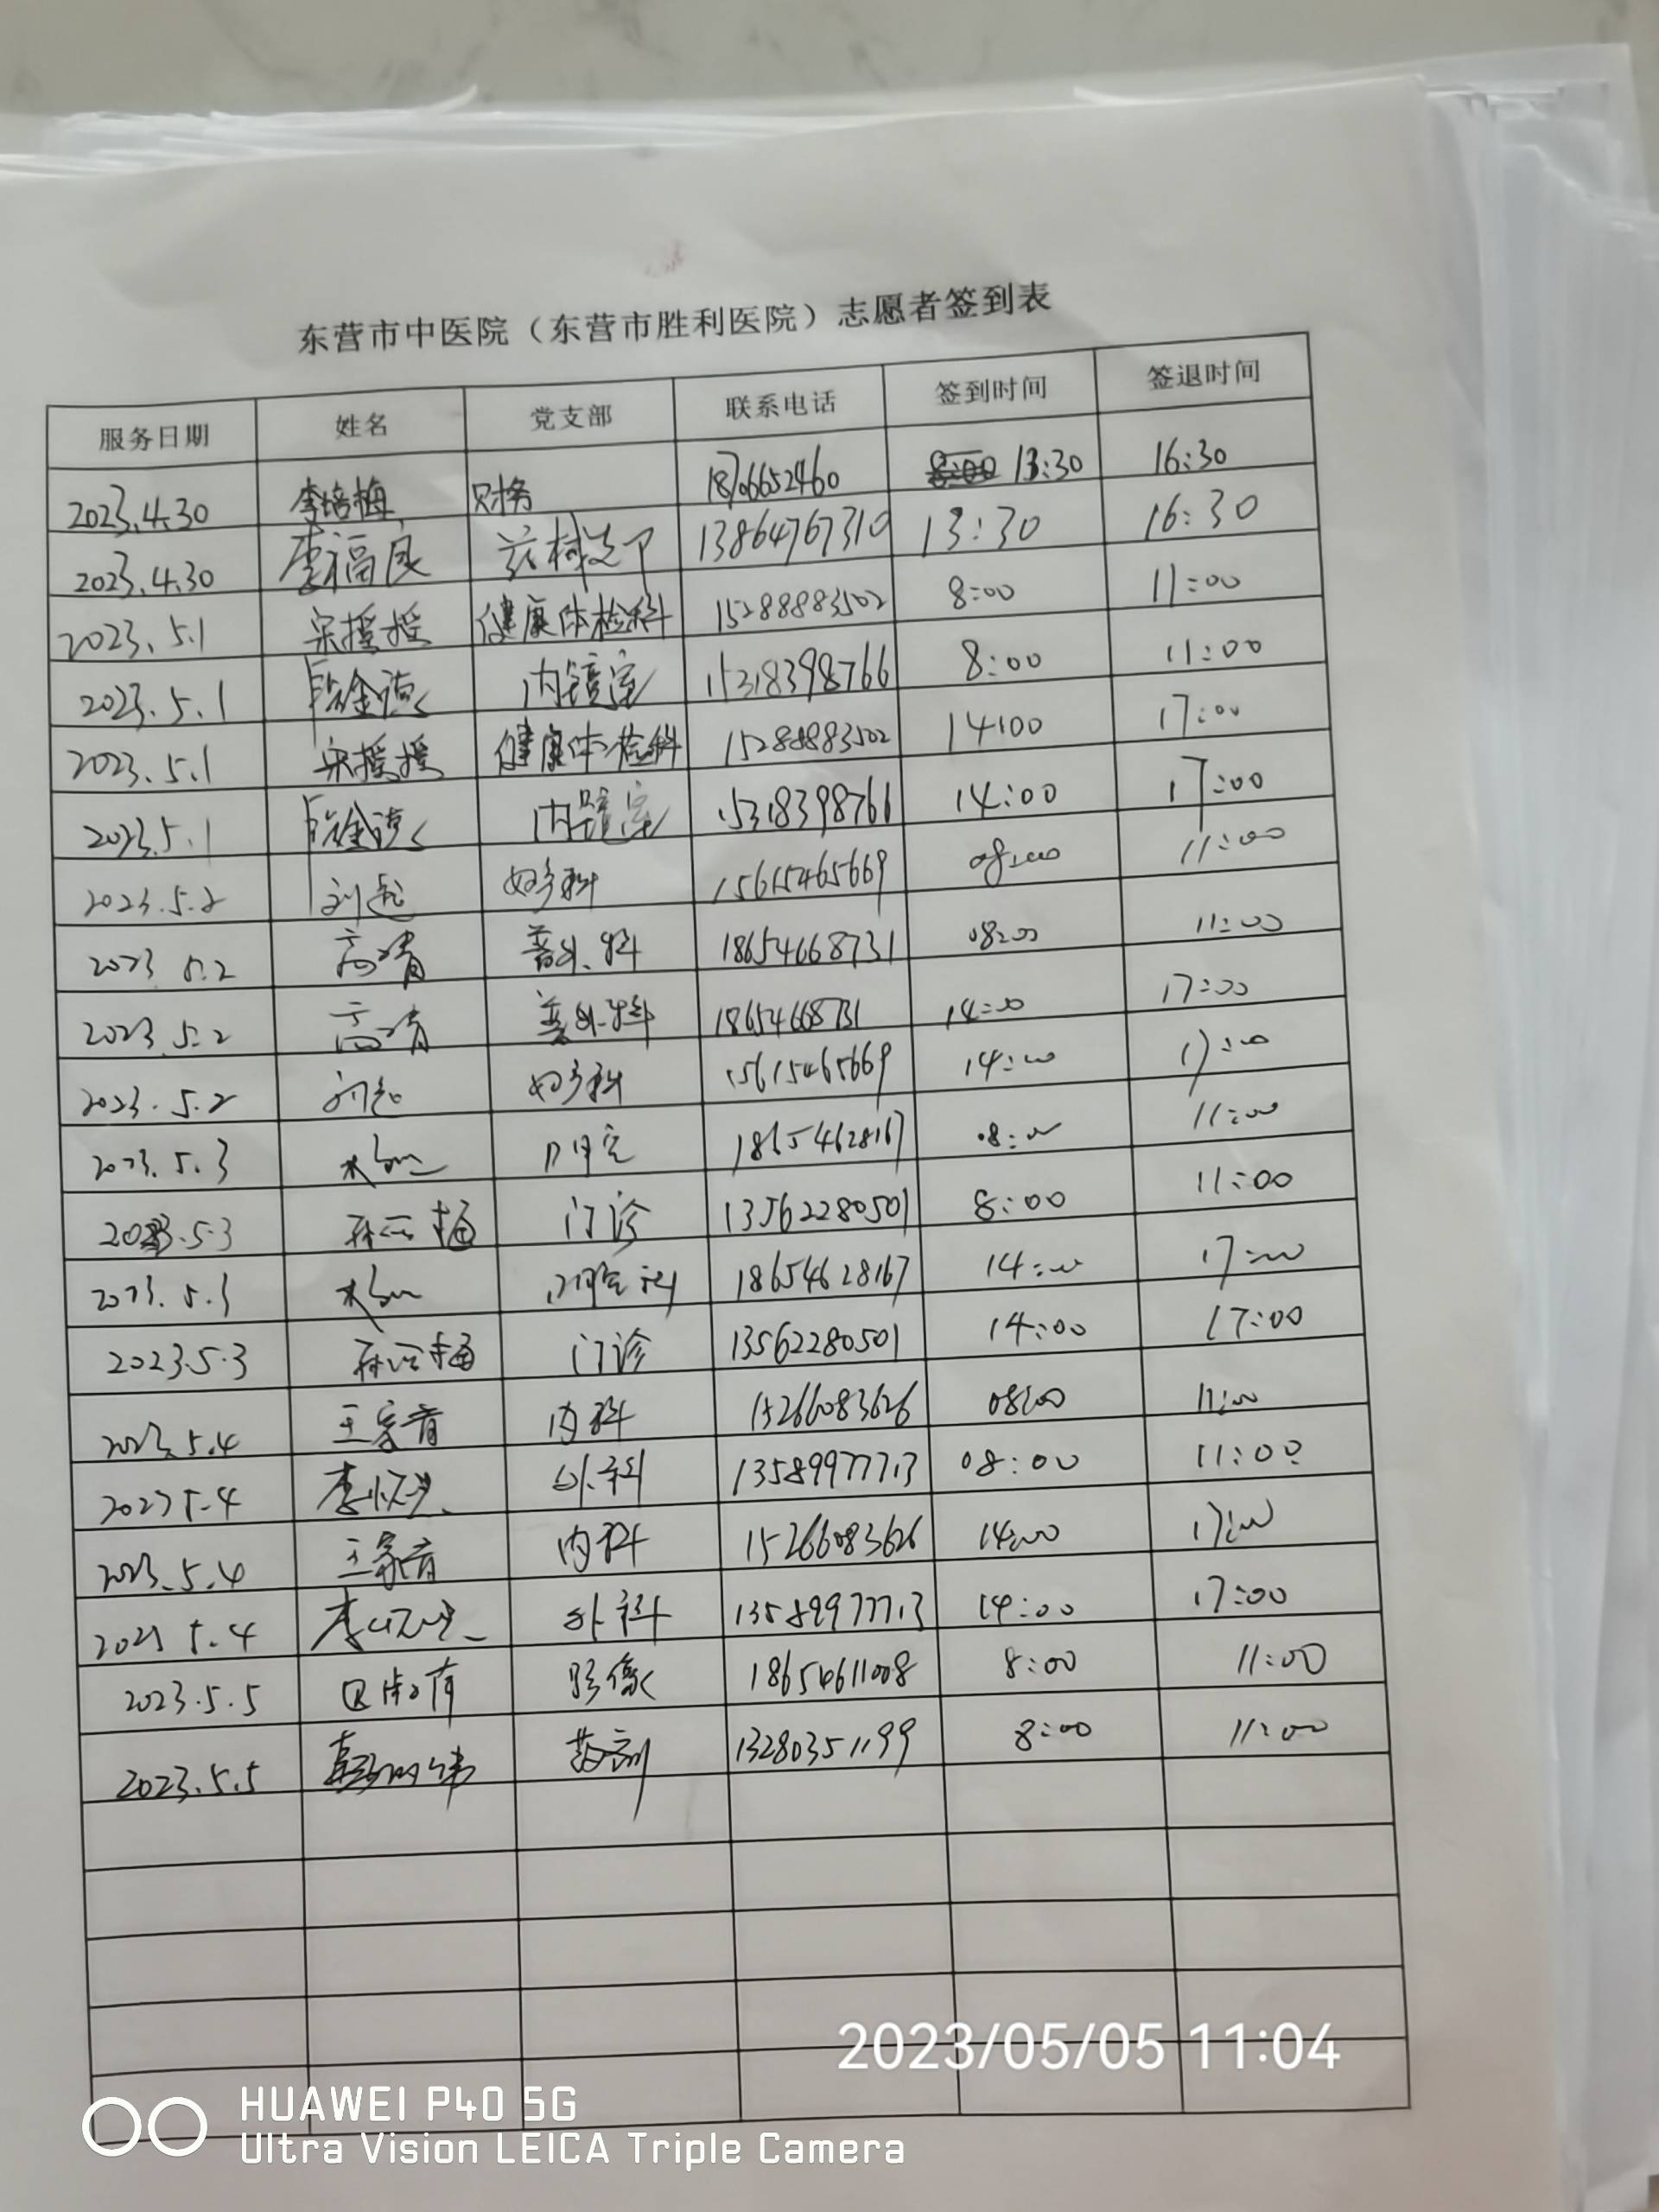 东营市中医院（东营市胜利医院）志愿者签到表
服务日期 姓名 党支部 联系电话 签到时间 签退时间
2023.4.30 李培梅 财务 18706652460 13:30 16:30
2023.4.30 李福良 药械支部 13864767310 13:30 16:30
2023.5.1 宋援援 健康体检科 15288883502 8:00 11:00
2023.5.1 内镜室 15318398766 8:00 11:00
2023.5.1 宋援援 健康体检科 15288883502 14:00 17:00
2023.5.1 内镜室 15318398766 14:00 17:00
2023.5.2 刘超 妇产科 15615465669 08:00 11:00
2023.5.2 高靖 普外科 18654668731 08:00 11:00
2023.5.2 高靖 普外科 18654668731 14:00 17:00
2023.5.2 妇产科 15615465669 14:00 17:00
2023.5.3 口腔 18654628167 08:00 11:00
2023.5.3 门诊 13562280501 8:00 11:00
2023.5.3 口腔科 18654628167 14:00 17:00
2023.5.3 门诊 13562280501 14:00 17:00
2023.5.4 内科 15266083626 08:00 11:00
2023.5.4 外科 13589977713 08:00 11:00
2023.5.4 内科 15266083626 14:00 17:00
2023 5.4 外科 13589977713 14:00 17:00
2023.5.5 影像 18654611008 8:00 11:00
2023.5.5 药剂 13280351199 8:00 11:00
2023/05/05 11:04
HUAWEI P40 5G
Ultra Vision LEICA Triple Camera